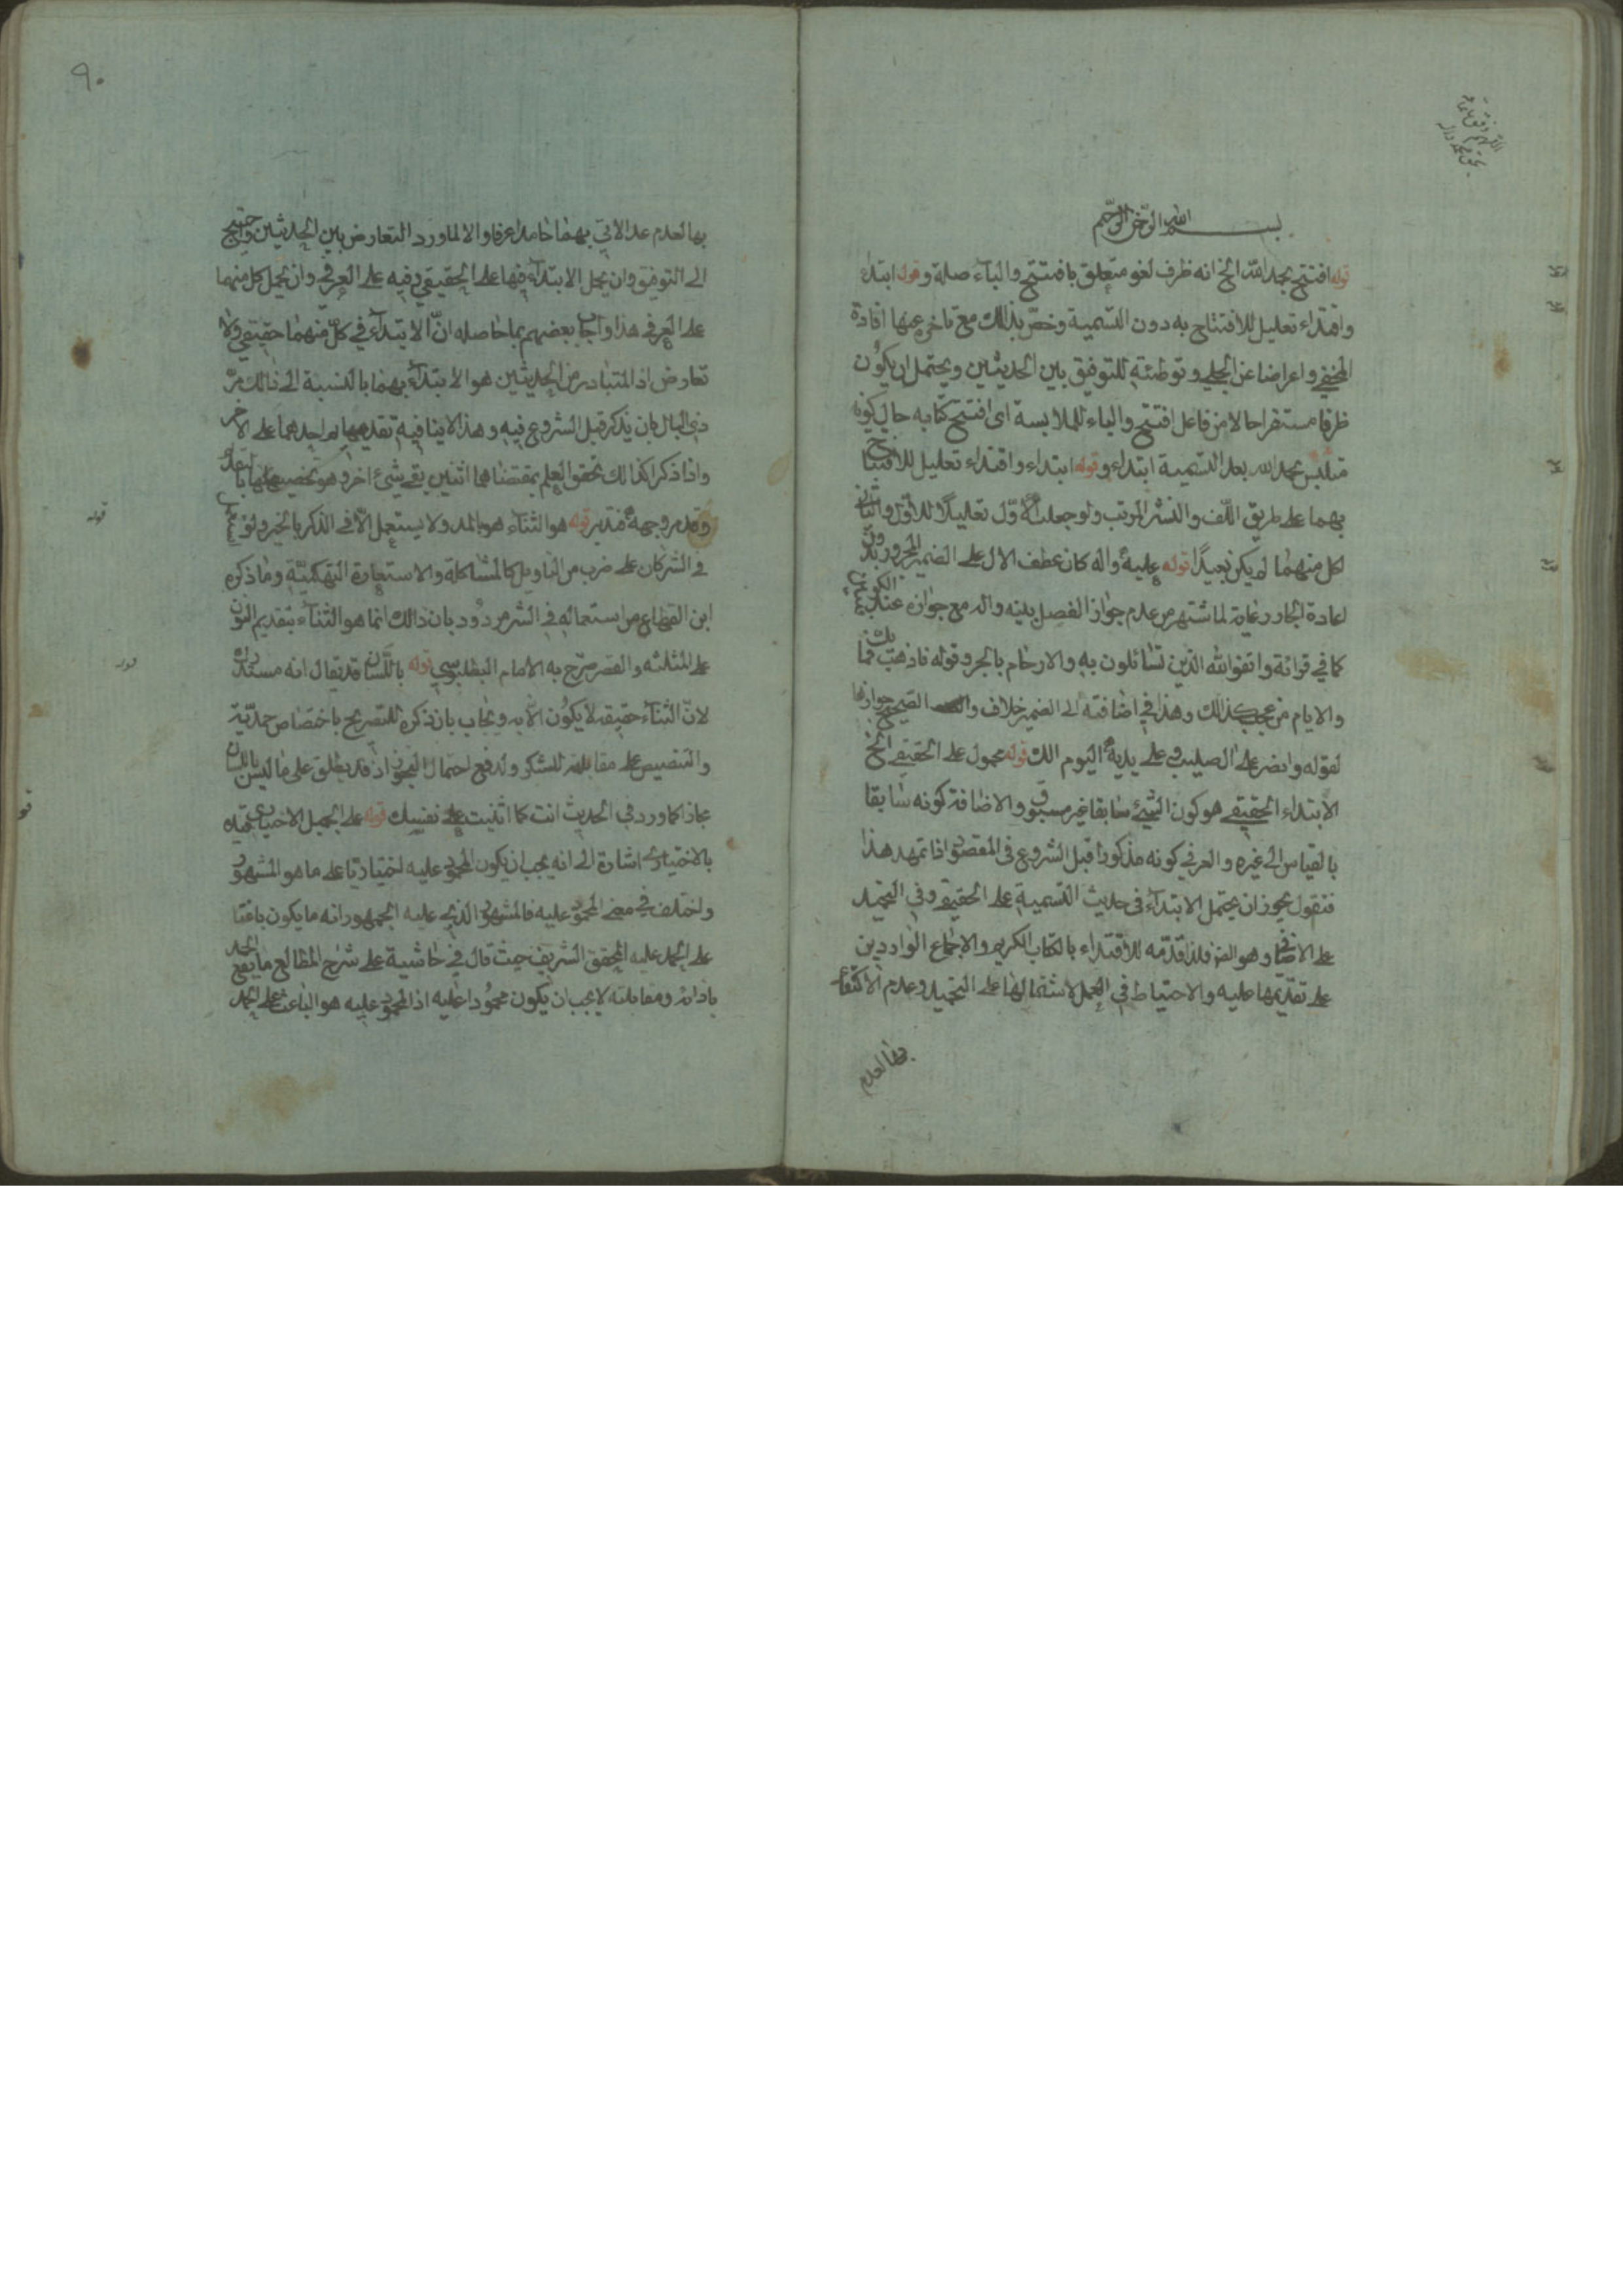 بسم الله الرحمن الرحيم
قوله افتتح بحمد الله الخ انه ظرف لغو متعلق بافتتح والباء صلة وقوله ابتداء
واقتداء تعليل للافتتاح به دون التسمية وخص بذالك مع تاخره عنها افادة
المخفي واعراضا عن الجلي وتوطئة للتوفيق بين الحديثين ويحتمل ان يكون
ظرفا مستقرا حالا من فاعل افتتح والباء للملابسة اى افتتح كتابه حال كونه
متلبس بحمد الله بعد التسمية ابتداء وقوله ابتداء واقتداء تعليل للافتتاح
بهما على طريق اللف والنشر المرتب ولو جعلت الاول تعليلا للاول والثاني
لكل منهما لم يكن بعيدا قوله عليه واله كان عطف الال على الضمير المجرور بدون
اعادة الجار رعاية لما شتهر من عدم جواز الفصل بينه واله مع جوازه عند الكوفيين
كما في قرائة واتقوا الله الذين تسائلون به والارحام بالجر وقوله فاذهب فما بك
والايام من عجب كذالك وهذا في اضافته الى الضمير خلاف والصحيح جوازها
لقوله وانصر على ال الصليب وعلى يديه اليوم الك قوله محمول على الحقيقي الخ
الابتداء الحقيقي هو كون الشيئ سابقا غير مسبوق والاضافة كونه سابقا
بالقياس الى غيره والعرفي كونه مذكورا قبل الشروع فى المقصود اذا تمهد هذا
فنقول يجوز ان يحتمل الابتداء فى حديث التسمية على الحقيقي وفي التحميد
على الاضافي وهو الف فلذا قدمه للاقتداء بالكتاب الكريم والاجماع الواردين
على تقديمها عليه والاحتياط في العمل لاشتمالها على التحميد وعدم الاكتفاء
بها لعدم
٩٠
بها لعدم عد الاتي بهما حامدا عرفا والا لما ورد التعارض بين الحديثين واحتيج
الى التوفيق وان يحمل الابتداء فيها على الحقيقي وفيه على العرفي وان يحمل كل منهما
على العرفي هذا واجاب بعضهم بما حاصله ان الابتداء في كل منهما حقيقي ولا
تعارض اذ المتبادر من الحديثين هو الابتداء بهما بالنسبة الى ذالك من
ذي البال بان يذكر قبل الشروع فيه وهذا لا ينافيه تقديم احدهما على الاخر
واذا ذكر كذالك تحقق العلم بمقتضاهما اثنين بقي شيئ اخر وهو تخصيصها بالتقديم
وقد مر وجهه فتدبر قوله هو الثناء هو بالمد ولا يستعمل الا في الذكر بالخير ولو
في الشر كان على ضرب من التاويل كالمشاكلة والاستعارة التهكمية وما ذكره
ابن القطاع من استعماله في الشر مردود بان ذالك انما هو الثناء بتقديم النون
على المثلثه والقصر صرح به الامام البطلبوسي قوله باللسان قد يقال انه مستدرك
لان الثناء حقيقة لا يكون الا به ويجاب بان ذكره للتصريح باختصاص حمدية
والتنصيص على مقابلة للشكر ولدفع احتمال التجوز اذ قد يطلق على ما ليس باللسان
مجازا كما ورد في الحديث انت كما اثنيت على نفسك قوله على الجميل الاختياري قيده
بالاختياري اشارة الى انه يجب ان يكون المحمود عليه اختياريا على ما هو المشهور
واختلف في معنى المحمود عليه فالمشهور الذي عليه الجمهور انه ما يكون باعثا
على الحمد عليه المحقق الشريف حيث قال في حاشية على شرح المطالع ما يقع الحمد
باذائه ومقابلته لا يجب ان يكون محمودا عليه اذ المحمود عليه هو الباعث على الحمد
قوله
قوله